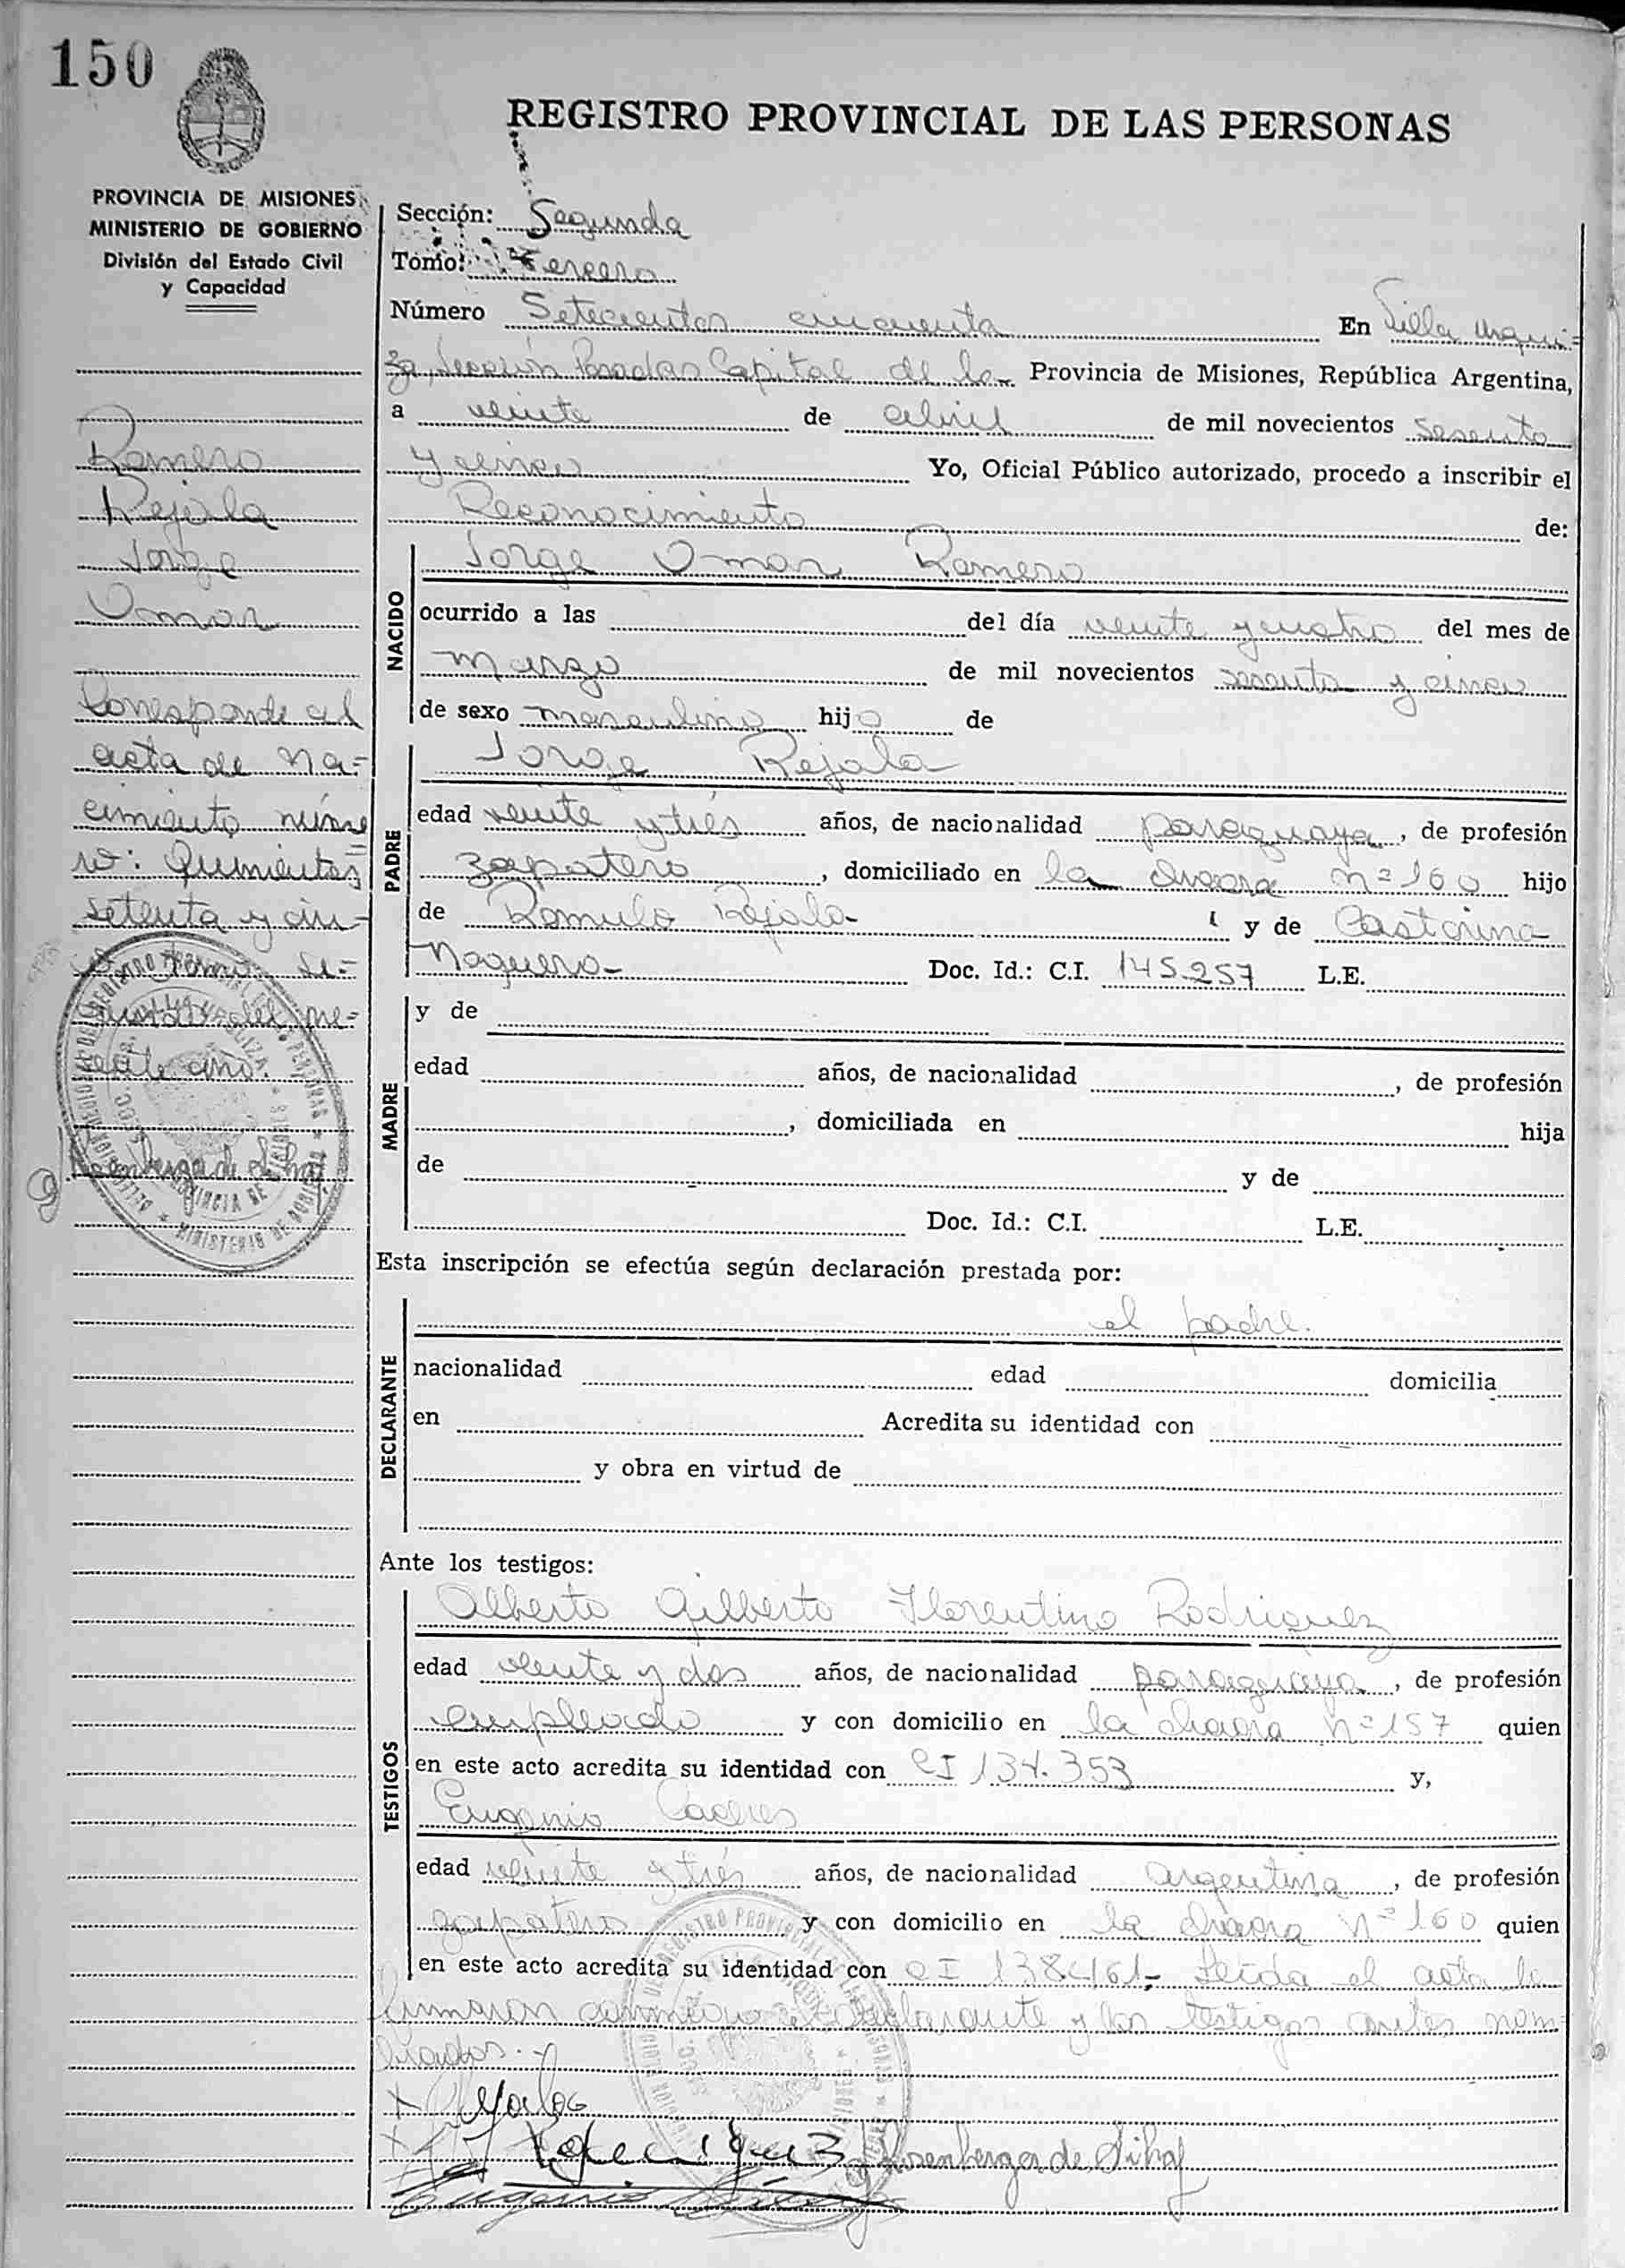 150
REGISTRO PROVINCIAL DE LAS PERSONAS
PROVINCIA DE MISIONES
MINISTERIO DE GOBIERNO
División del Estado Civil
y Capacidad
Romero
Rejala
Jorge
Omar
Corresponde al
acta de na=
cimiento núme
ro: Quinientos
setenta y cin-
co tomo se=
gundo del pre=
sente año.
Sección: Segunda
Tomo: Tercero
Número Setecientos cincuenta En Villa Urqui=
za, Sección Posadas Capital de la Provincia de Misiones, República Argentina,
a veinte de abril de mil novecientos sesenta
y cinco Yo, Oficial Público autorizado, procedo a inscribir el
Reconocimiento de:
NACIDO
Jorge Omar Romero
ocurrido a las del día veinte y cuatro del mes de
marzo de mil novecientos sesenta y cinco
de sexo masculino hijo de
PADRE
Jorge Rejala
edad veinte y trés años, de nacionalidad paraguaya, de profesión
zapatero, domiciliado en la chacra nº 160 hijo
de Romulo Rejala y de Castorina
Noguera Doc. Id.: C.I. 145.257 L.E.
MADRE
y de
edad años, de nacionalidad , de profesión
, domiciliada en hija
de y de
Doc. Id.: C.I. L.E.
Esta inscripción se efectúa según declaración prestada por:
DECLARANTE
el padre.
nacionalidad edad domicilia
en Acredita su identidad con
y obra en virtud de
Ante los testigos:
TESTIGOS
Alberto Gilberto Florentino Rodriguez
edad veinte y dos años, de nacionalidad paraguaya, de profesión
empleado y con domicilio en la chacra nº 157 quien
en este acto acredita su identidad con CI 134.353 y,
Eugenio Caceres
edad veinte y trés años, de nacionalidad argentina, de profesión
zapatero y con domicilio en la chacra nº 160 quien
en este acto acredita su identidad con CI Leida el acta la
firmaron conmigo el declarante y los testigos antes nom
brados.